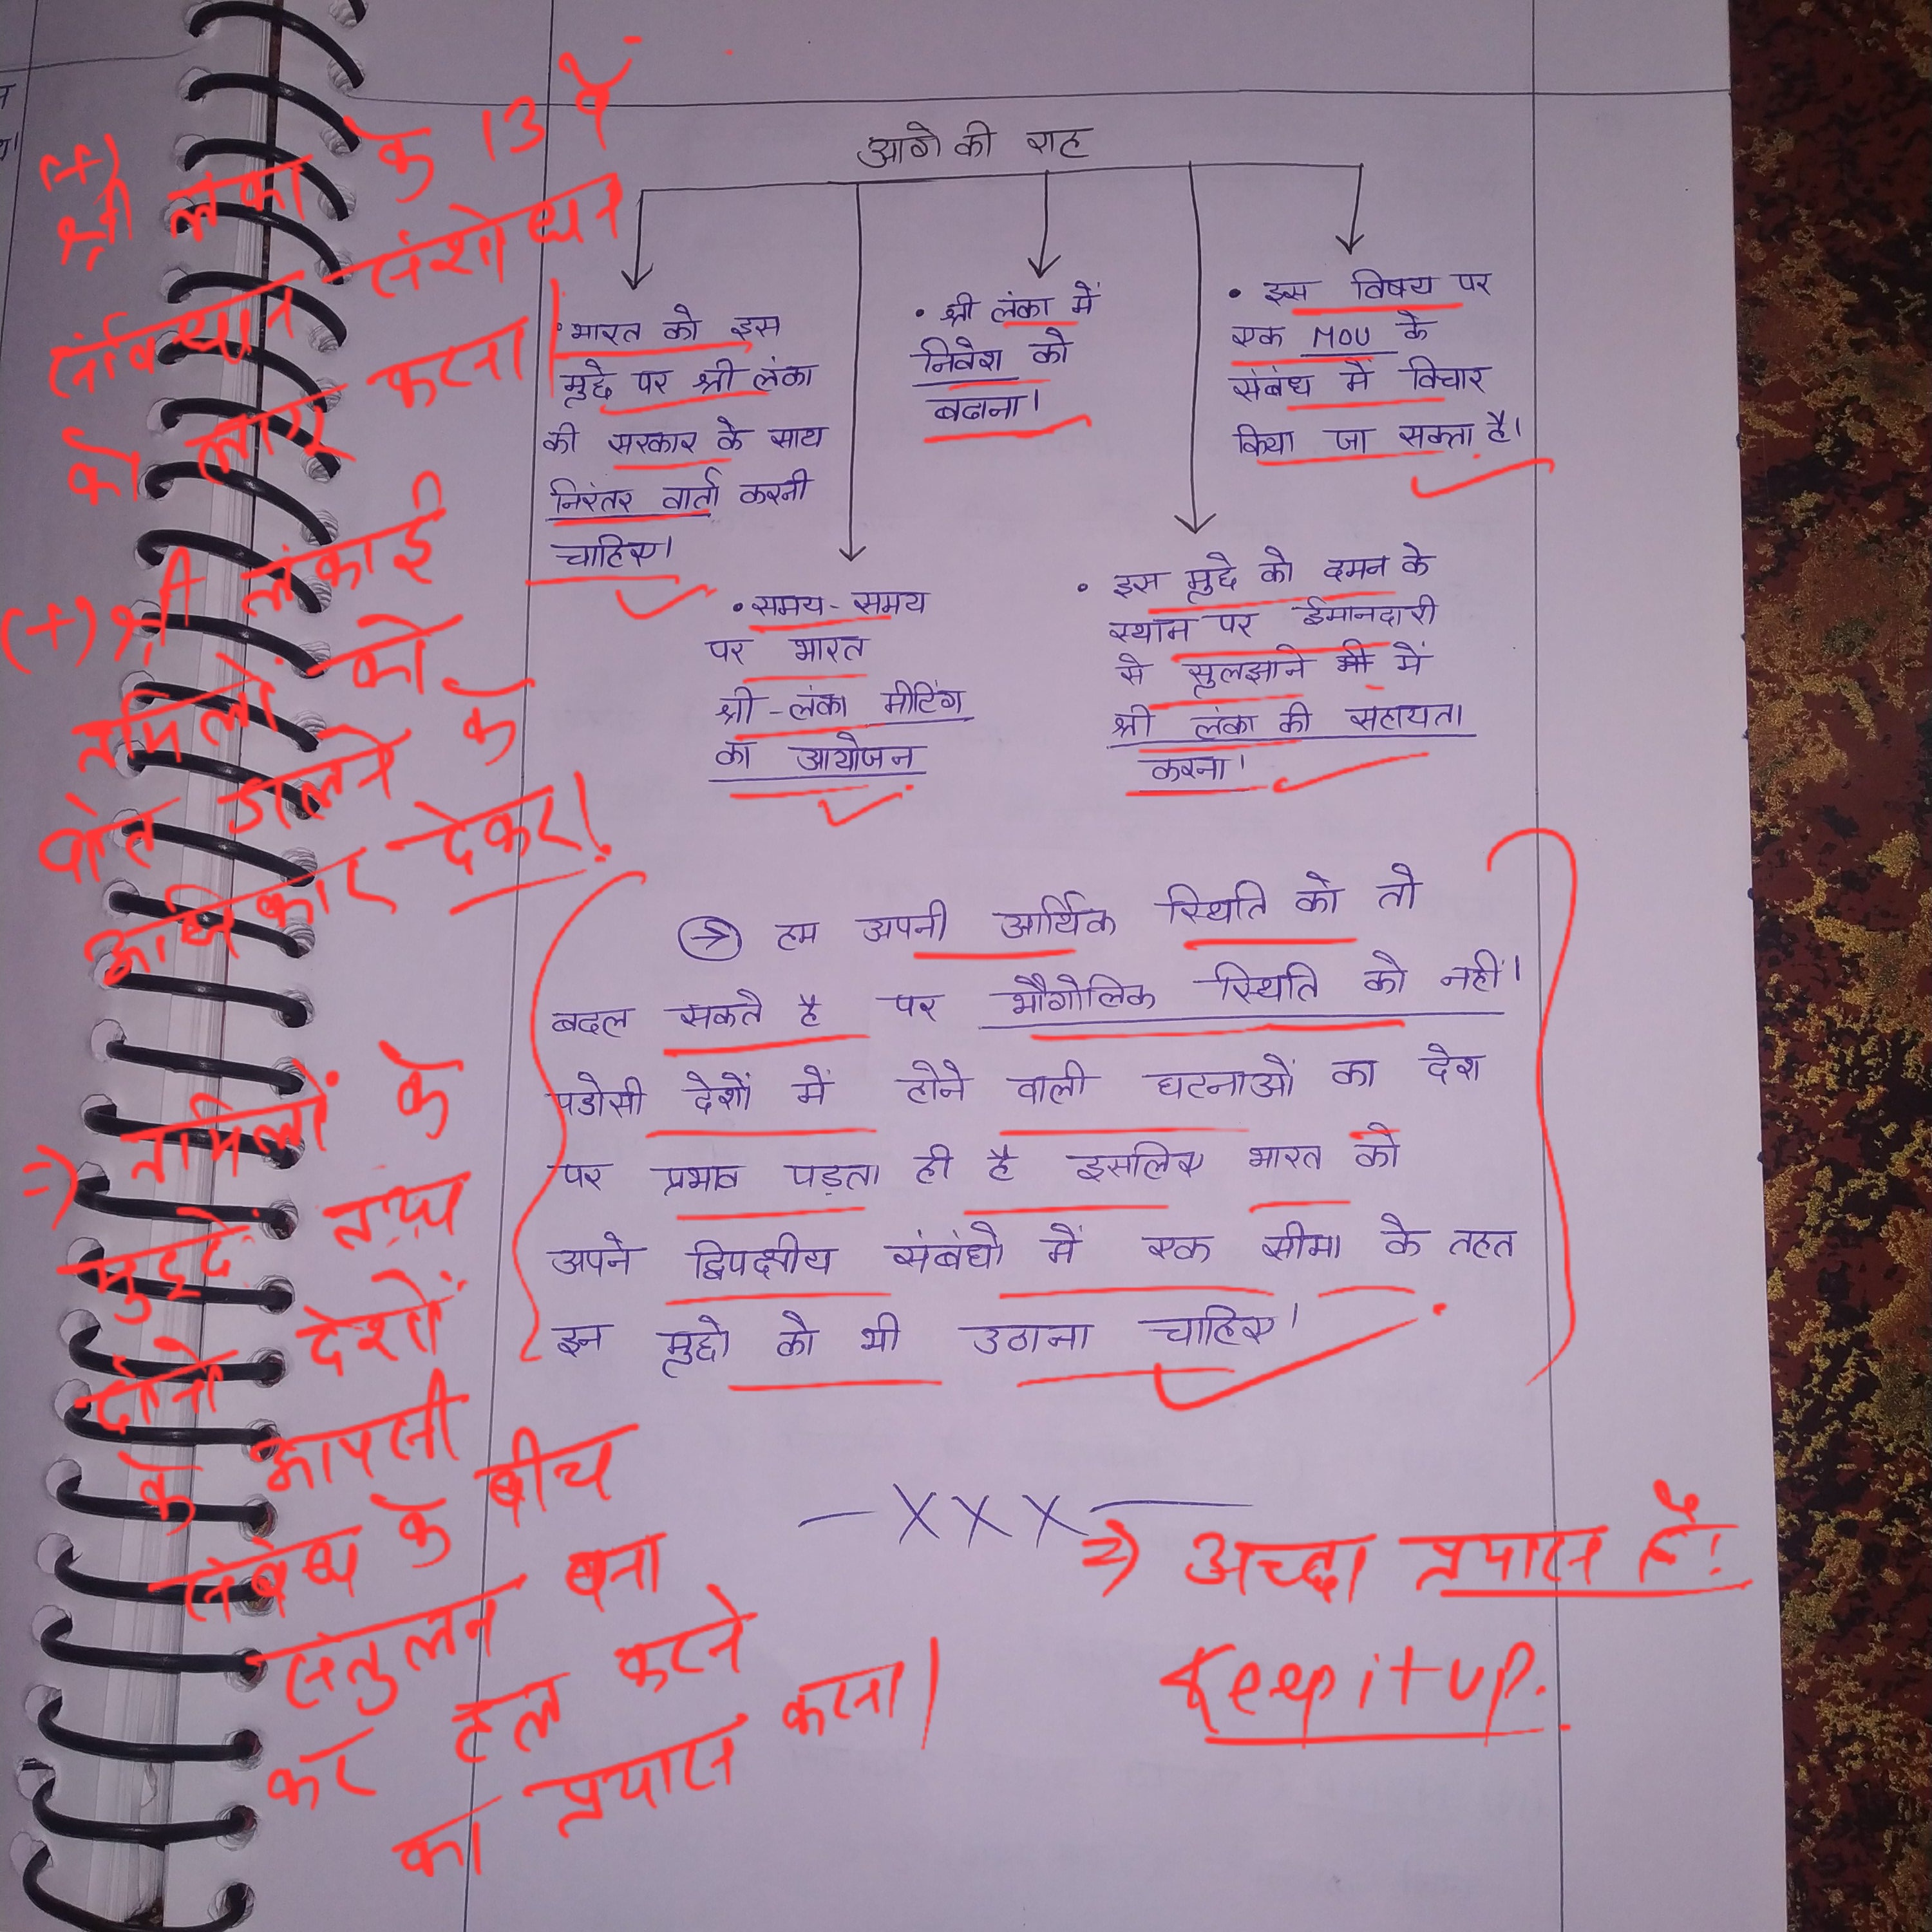 आगे की राह
• भारत को इस
मुद्दे पर श्री लंका
की सरकार के साथ
निरंतर वार्ता करनी
चाहिए।
• समय - समय
पर भारत
श्री - लंका मीटिंग
का आयोजन
• श्री लंका में
निवेश को
बढाना।
• इस मुद्दे को दमन के
स्थान पर ईमानदारी
से सुलझाने में
श्री लंका की सहायता
करना।
• इस विषय पर
एक MOU के
संबंध में विचार
किया जा सकता है।
→ हम अपनी आर्थिक स्थिति को तो
बदल सकते है पर भौगोलिक स्थिति को नहीं।
पडोसी देशों में होने वाली घटनाओं का देश
पर प्रभाव पड़ता ही है इसलिए भारत को
अपने द्विपक्षीय संबंधो में एक सीमा के तहत
इन मुद्दो को भी उठाना चाहिए।
— X X X —
(+)
श्री लंका के 13 वें
संविधान संशोधन
को लागू करना।
(+) श्री लंकाई
तमिलों को
वोत डालने के
अधिकार देकर।
⇒ तमिलों के
मुद्दे तथा
दोनों देशों
के आपसी
संबंध के बीच
संतुलन बना
कर हल करने
का प्रयास करना।
⇒ अच्छा प्रयास है।
Keep it up.